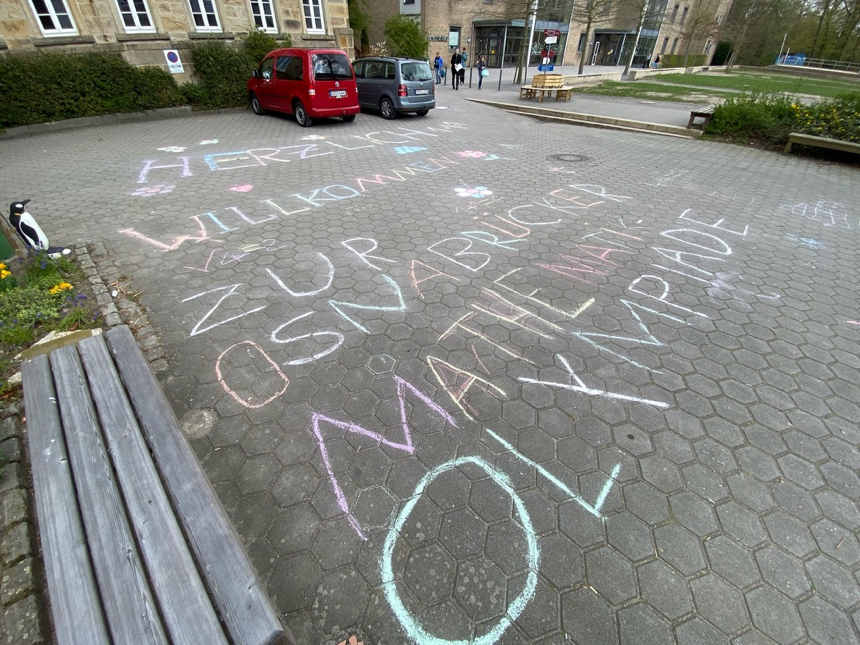 HERZLICH
WILLKOMMEN
ZUR
OSNABRÜCKER
MATHEMATIK
OLYMPIADE